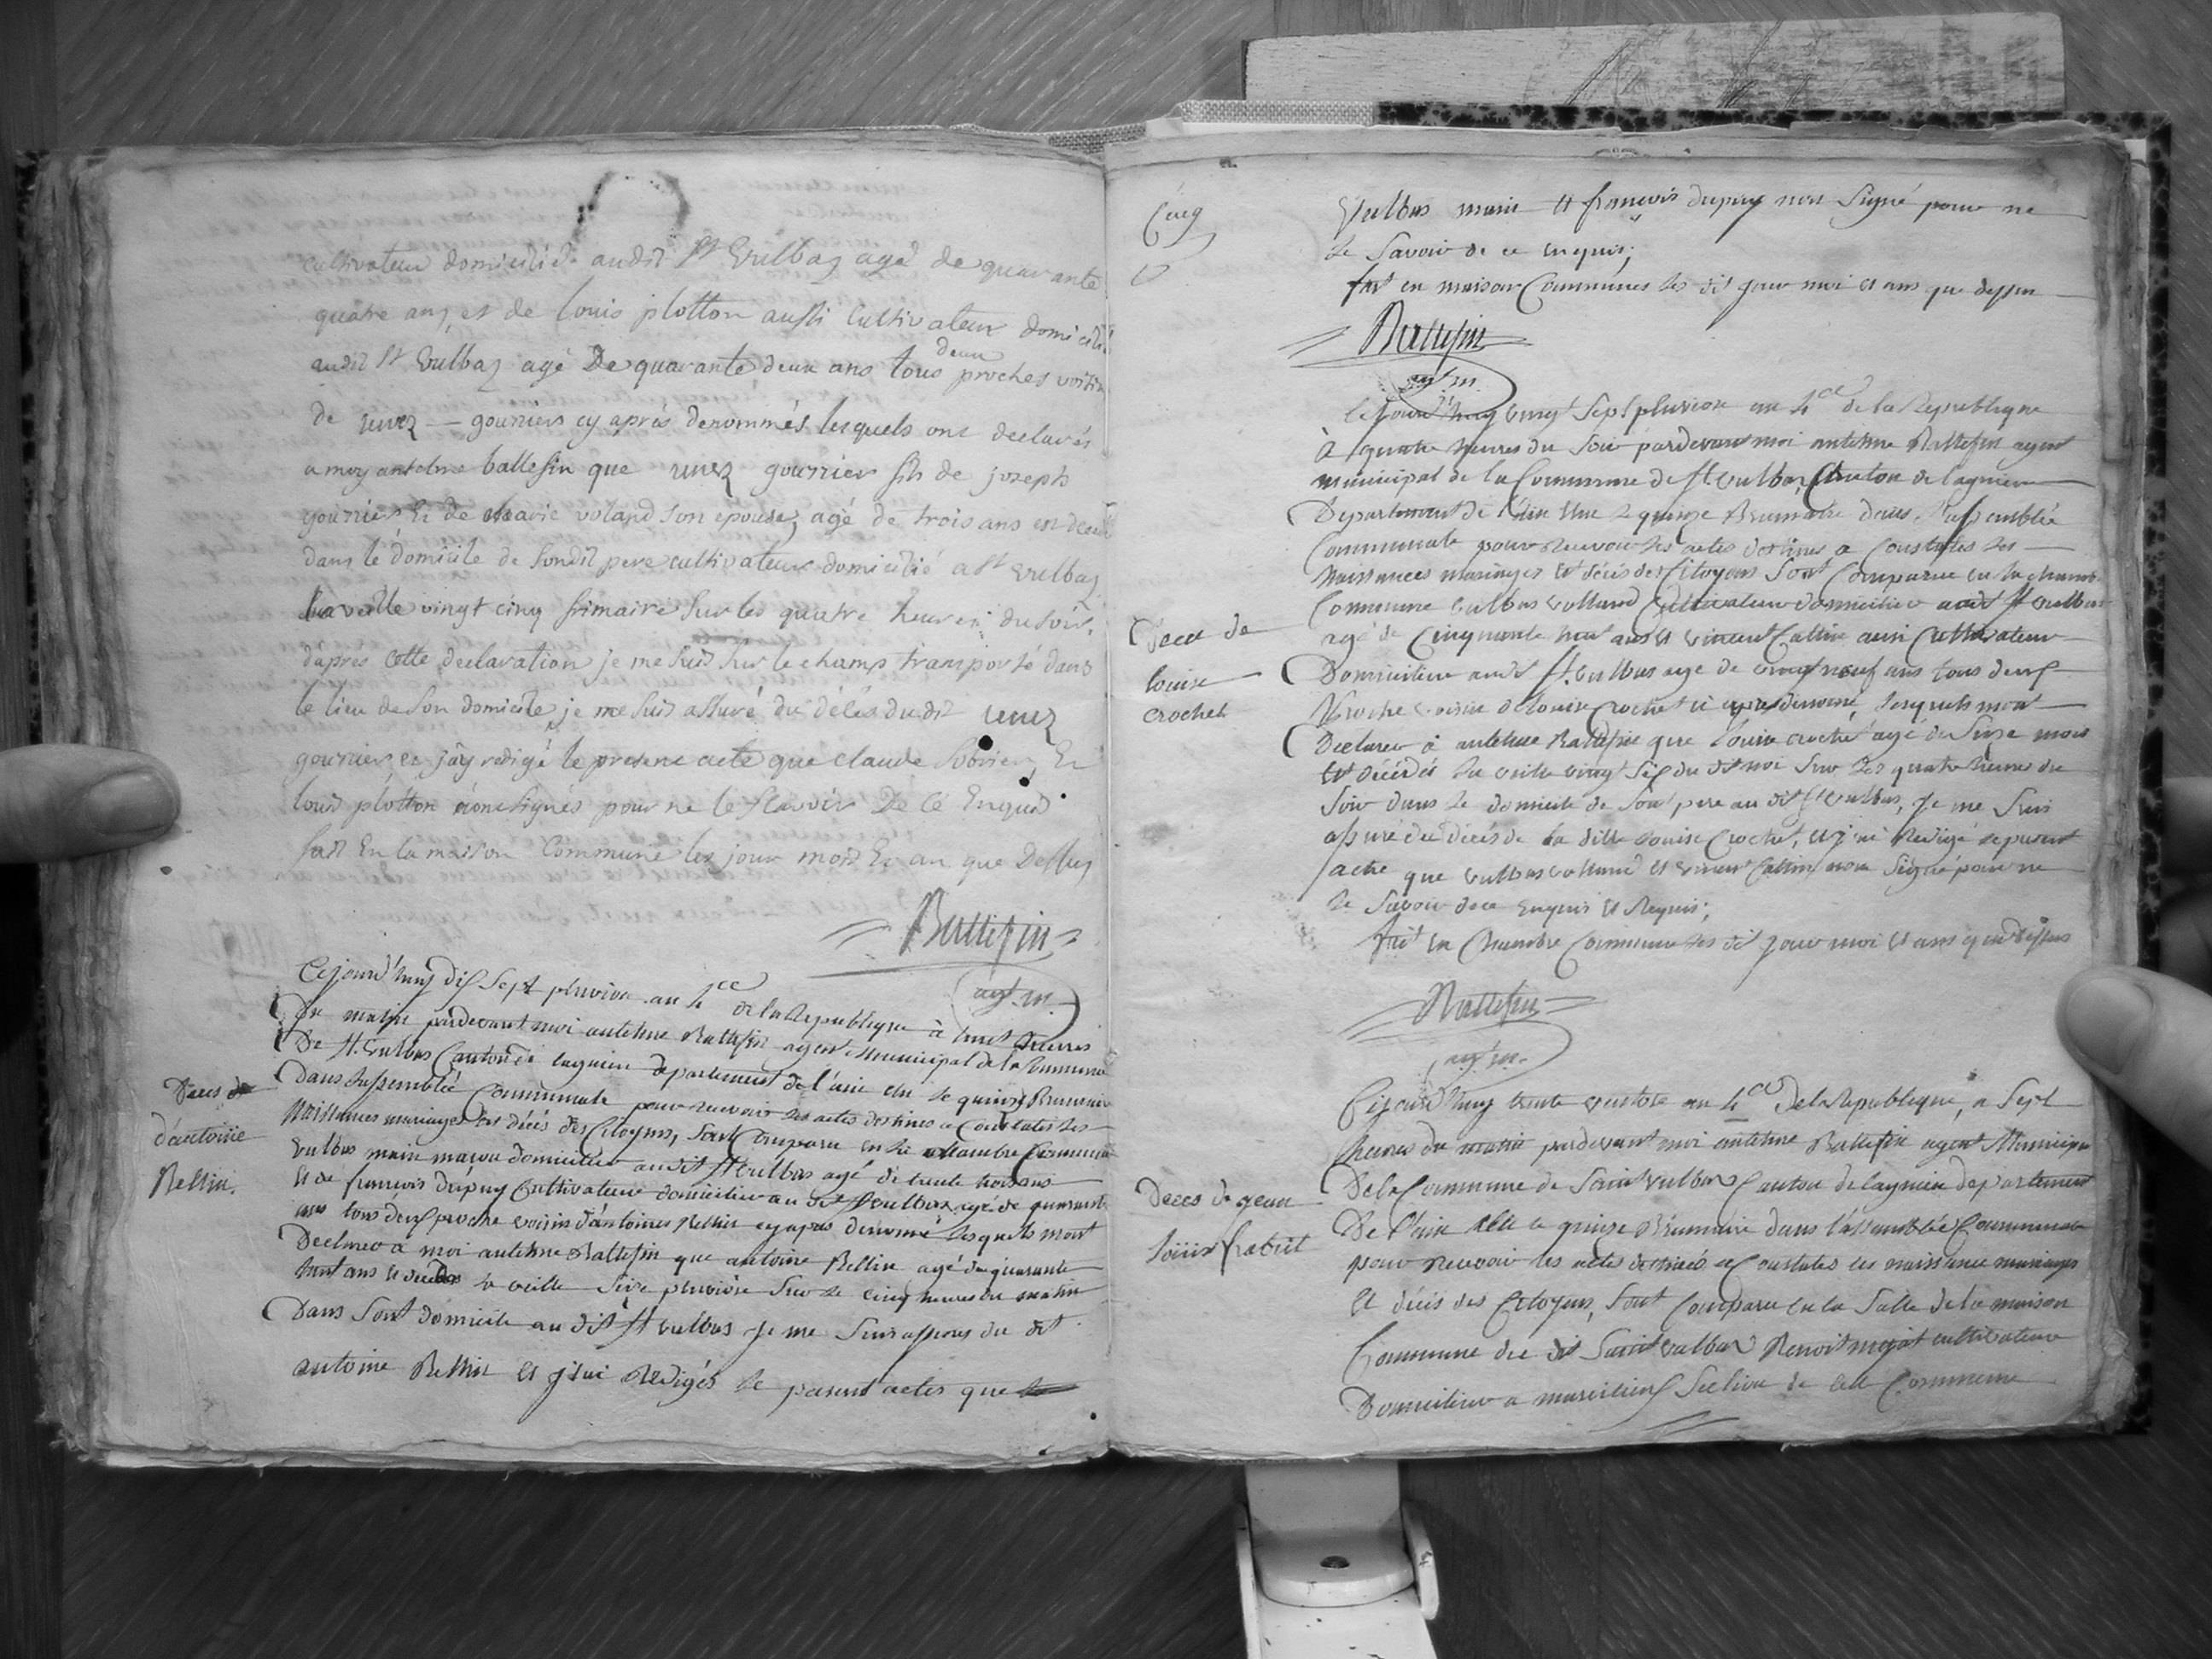 cultivateur domicilié audit St Vulbaz agé de quarante
quatre ans, et de louis plotton aussi Cultivateur domicilié
audit St Vulbaz agé De quarante deux ans tous deux proches voisin
de gourrier cy aprés denommés lesquels ont declarés
a moy antelme ballefin que gourrier fils de joseph
gourrier Et de Marie voland son epouse, agé de trois ans est decedé
dans le domicile de Sondit pere cultivateur domicilié a St Vulbaz
La veille vingt cinq frimaire Sur les quatre heures du Soir,
d'aprés cette declaration je me Suis Sur le champ transporté dans
le lieu de Son domicile, je me Suis assuré du décés dudit
gourrier et j'ay redigé le present acte que Claude Et
louis plotton signés pour ne le Scavoir De Ce Enquis
fait En la maison Commune les jour mois Et an que Dessus
Ballefin
agt. m.
Deces de
d'antoine
Bellin.
Cejourd'huy dix Sept pluviose an 4ce de la Republique à huit heures
Du matin pardevant moi antelme Ballefin agent Municipal de la Commune
De St. Vulbas Canton de lagnieu departement de l'ain elu le quinze Brumaire
Dans l'assemblée Communale pour recevoir les actes destines a Constates les
Naissances mariages et décés des Citoyens, Sont Comparu en la Chambre Commune
Vulbas marin domicilier audit St Vulbas agé de trente trois ans
Et de francois dupuy Cultivateur domicilier au dit St Vulbas agé de quarante
ans tous deux proche voisin d'antoines Bellin cy apres denommé lesquels mont
Declarer a moi antelme Ballefin que antoine Bellin agé de quarante
huit ans et decedes la veille Seize pluviose Sur le cinq heures du matin
Dans Sont domicile au dit St Vulbas je me Suis assures du dit
antoine Bellin et j'aie Rediges le present actes que
Cinq
Vulbas marin et francois dupuy non Signé pour ne
le Savoir de ce enquis;
fait en maison Communes les dit jour moi et ans que dessu
Ballefin
agt. m.
Deces de
louise
Crochet
Cejourd'huy vingt Sept pluviose an 4ce de la Republique
À quatre heures du Soir pardevant moi antelme Ballefin agent
municipal de la Commune de St. Vulbas, Canton de lagnieu
Departement de l'Ain Elue le quinze Brumaire dans l'assemblée
Communale pour recevoir les actes destines a Constates les
Naissances mariages Et décés des Citoyens Sont Comparue en la chamb
Commune Vulbas Volland Cultivateur domicilier audit St Vulbas
agé de Cinquante huit ans et vincent Cattin aussi Cultivateur
Domicilier audit St. Vulbas age de vingt neuf ans tous deux
Proche voisin de louise Crochet ci apres denomé, lesquels mont
Declarer à antelme Ballefin que louise crochet agé de Seize mois
Et décédés la veille vingt Six du dit moi Sur les quatre heures du
Soir dans le domicile de Sont pere au dit St Vulbas, Je me Suis
assuré du décés de la dite louise Crochet, et j'ai Redigé le present
acte que Vulbas Volland et vincent Cattin non Signé pour ne
le Savoir de ce Enquis et Requis;
fait en Chambre Commune les dit jour moi et ans que dessus
Ballefin
agt. m.
Deces de jean
louis frabit
Cejourd'huy trente ventose an 4ce De la Republique, a Sept
heures du matin pardevant moi antelme Ballefin agent Municipa
De la Commune de Saint Vulbas Canton de lagnieu departement
De l'ain élu le quinze Brumaire dans l'assemblée Communale
pour recevoir les actes destinés a Constates les naissance mariages
Et décés des Citoyens, Sont Comparu en la Salle de la maison
Commune du dit Saint Vulbas Benoit cultivateur
Domicilier a marcilieux Section de cett Commune